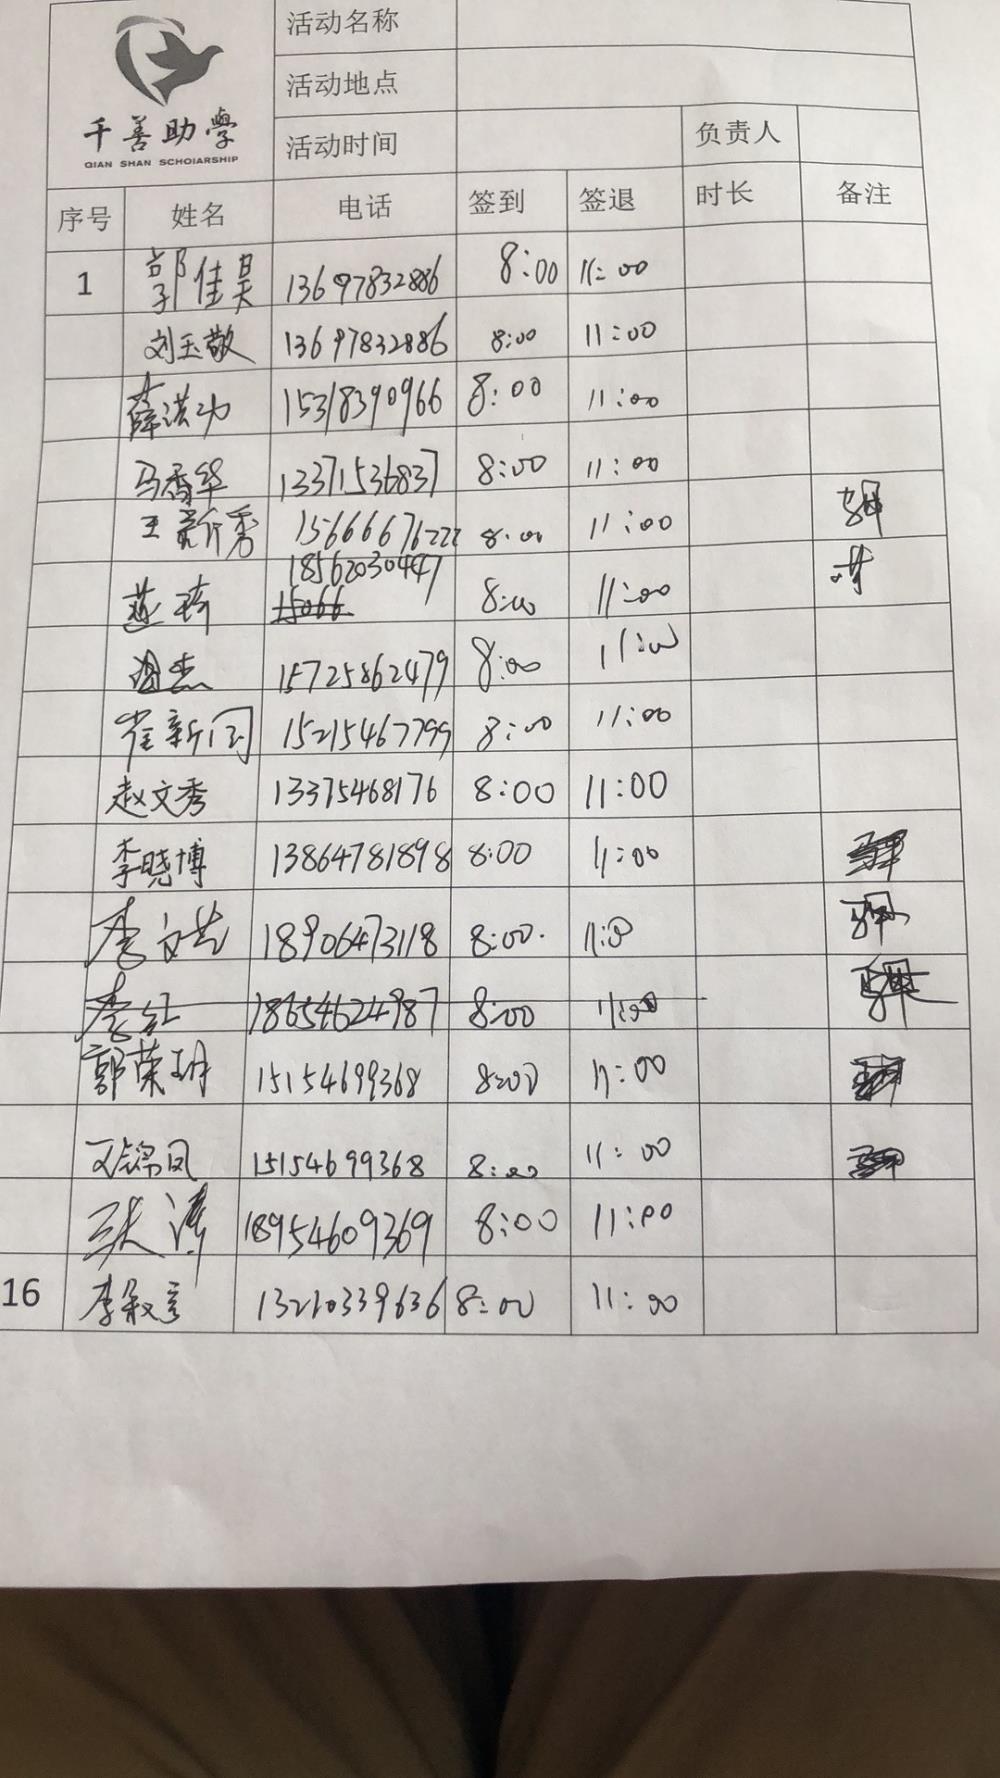 千善助學
QIAN SHAN SCHOIARSHIP
活动名称
活动地点
活动时间 负责人
序号 姓名 电话 签到 签退 时长 备注
1 郭佳昊 13697832886 8:00 11:00
刘玉敬 13697832886 8:00 11:00
薛洪功 15318390966 8:00 11:00
马香华 13371536837 8:00 11:00
王新秀 15666676222 8:00 11:00
18562030447
15066 8:00 11:00
15725862479 8:00 11:00
崔新 15215467799 8:00 11:00
赵文秀 13375468176 8:00 11:00
李晓博 13864781898 8:00 11:00
李文 18906473118 8:00 11:00
李红 18654624987 8:00 11:00
郭荣玥 15154699368 8:00 11:00
王锦凤 15154699368 8:00 11:00
张涛 18954609369 8:00 11:00
16 李 13210339636 8:00 11:00